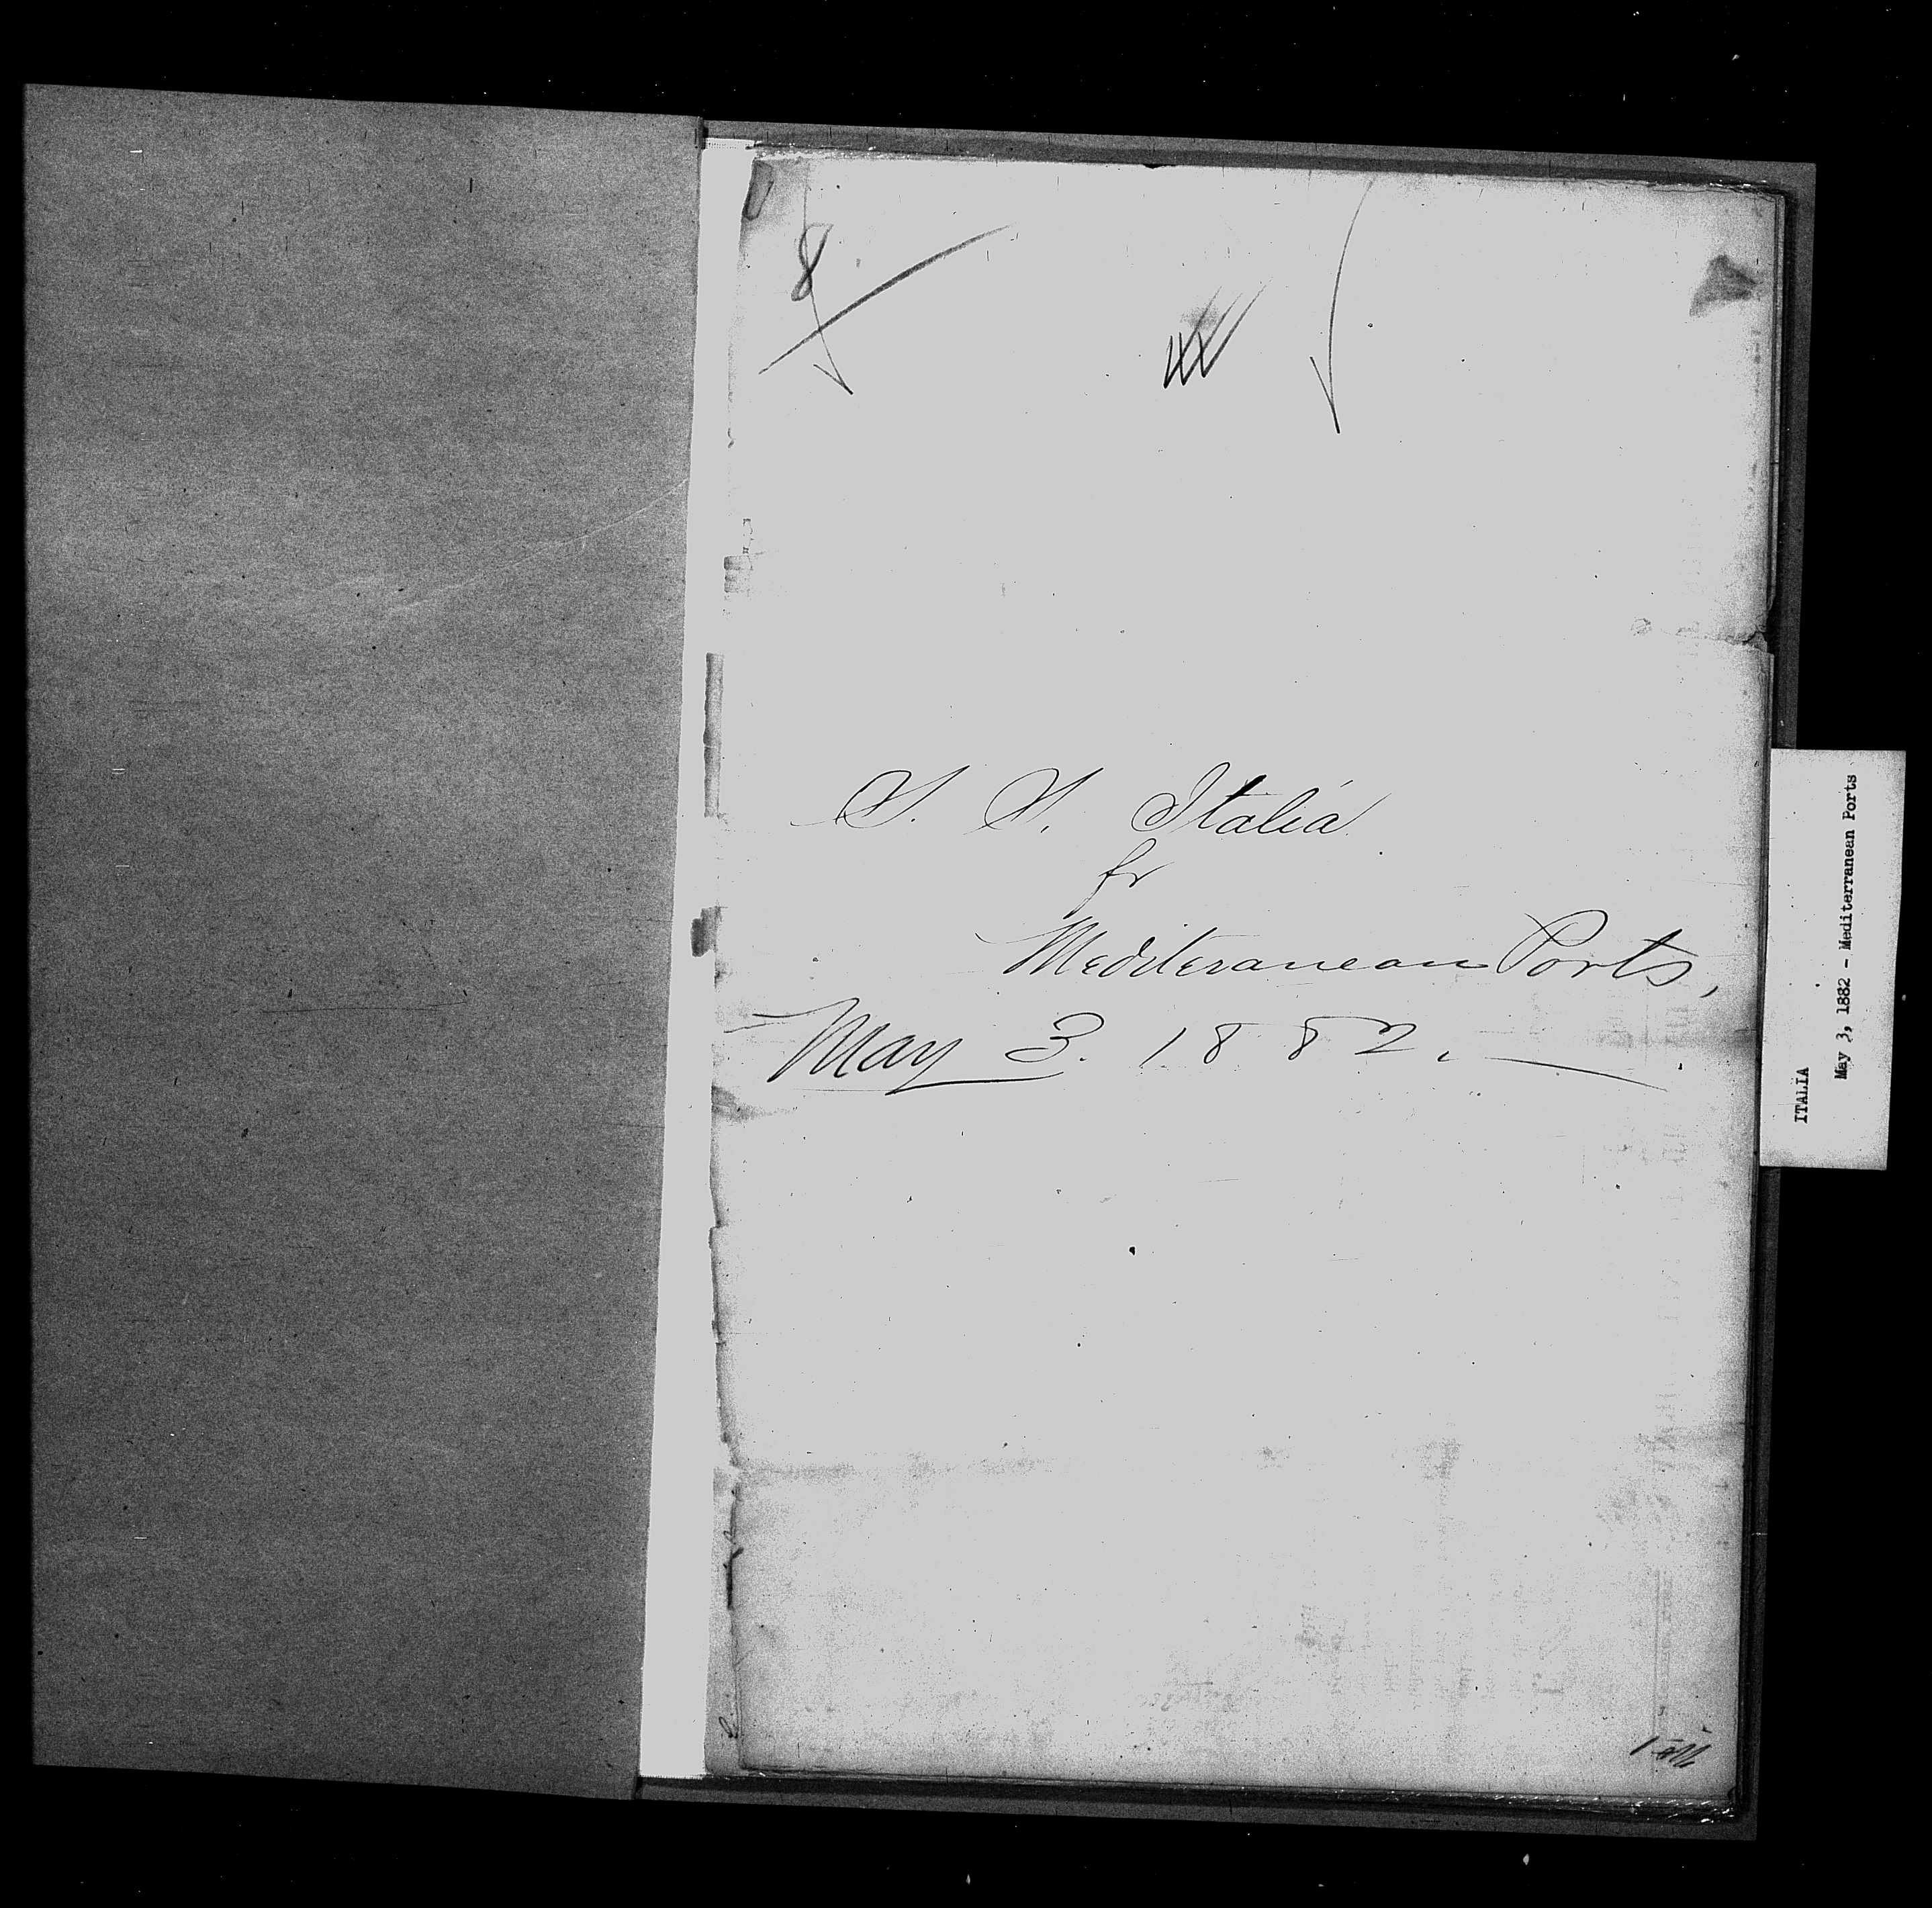 8
S. S. Italia
fr
Mediteranean Ports,
May 3. 1882.
ITALIA
May 3, 1882 - Mediterranean Ports